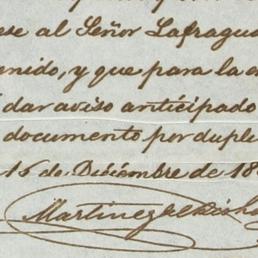 ese al Señor Lafragua
enido, y que para la
dar aviso anticipado
documento por duple
16 de Diciembre de 18